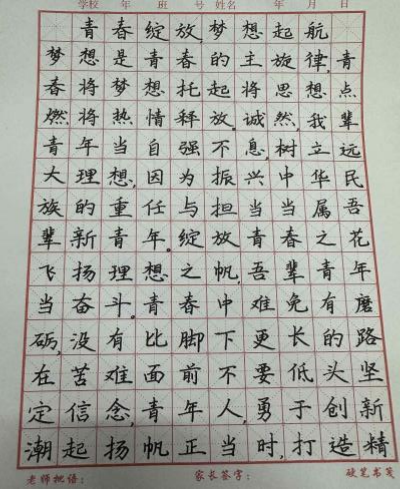 学校 年 班 号 姓名 年 月 日
青春绽放,梦想起航
梦想是青春的主旋律,青
春将梦想托起将思想点
燃将热情释放。诚然,我辈
青年当自强不息,树立远
大理想,因为振兴中华民
族的重任与担当当属吾
辈新青年。绽放青春之花
飞扬理想之帆,吾辈青年
当奋斗。青春中难免有磨
砺,没有比脚下更长的路
在苦难面前不要低头坚
定信念,青年人,勇于创新
潮起扬帆正当时,打造精
老师批语： 家长签字： 硬笔书笺